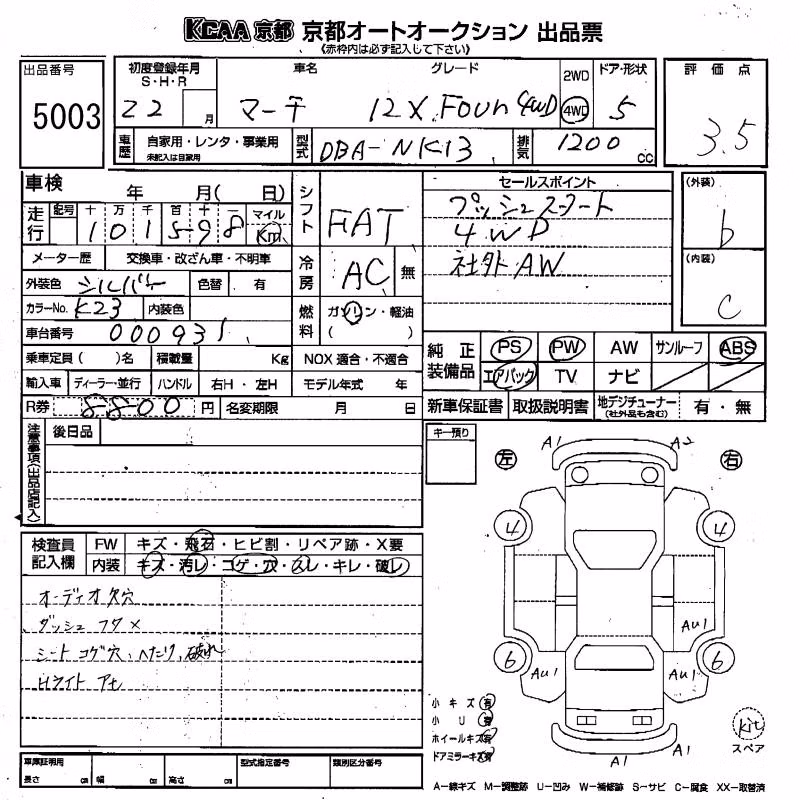 KCAA 京都 京都オートオークション 出品票
《赤枠内は必ず記入して下さい》
出品番号 5003
初度登録年月 S・H・R 22 月
車名 マーチ
グレード 12X Four 4WD
2WD 4WD
ドア・形状 5
評価点 3.5
車歴 自家用・レンタ・事業用 未記入は自家用
型式 DBA-NK13
排気 1200 cc
車検 年 月( 日)
走行 記号 十 万 千 百 十 一 マイル Km
1 0 1 5 9 8
メーター歴 交換車・改ざん車・不明車
外装色 シルバー 色替 有
カラーNo. K23 内装色
車台番号 000931
乗車定員( )名 積載量 Kg
輸入車 ディーラー・並行 ハンドル 右H・左H
R券 8800 円 名変期限 月 日
シフト FAT
冷房 AC 無
燃料 ガソリン・軽油 ( )
NOX 適合・不適合
モデル年式 年
セールスポイント
プッシュスタート
4WD
社外AW
(外装) b
(内装) C
純正装備品 PS PW AW サンルーフ ABS
エアバック TV ナビ
新車保証書 取扱説明書 地デジチューナー (社外品も含む) 有・無
注意事項(出品店記入)
後日品
キー預り
検査員記入欄 FW キズ・飛石・ヒビ割・リペア跡・X要
内装 キズ・汚レ・コゲ・穴・スレ・キレ・破レ
オーディオ欠穴
ダッシュフタ×
シートコゲ穴、へたり、破れ
Hライト アセ
左 右
A1 A2
4 4
AU1
6 6
AU1 AU1
A1 A1
小キズ 有
小U 有
ホイールキズ 有
ドアミラーキズ 有
kit
スペア
車庫証明用 長さ cm 幅 cm 高さ cm
型式指定番号 類別区分番号
A―線キズ M―調整跡 U―凹み W―補修跡 S―サビ C―腐食 XX―取替済